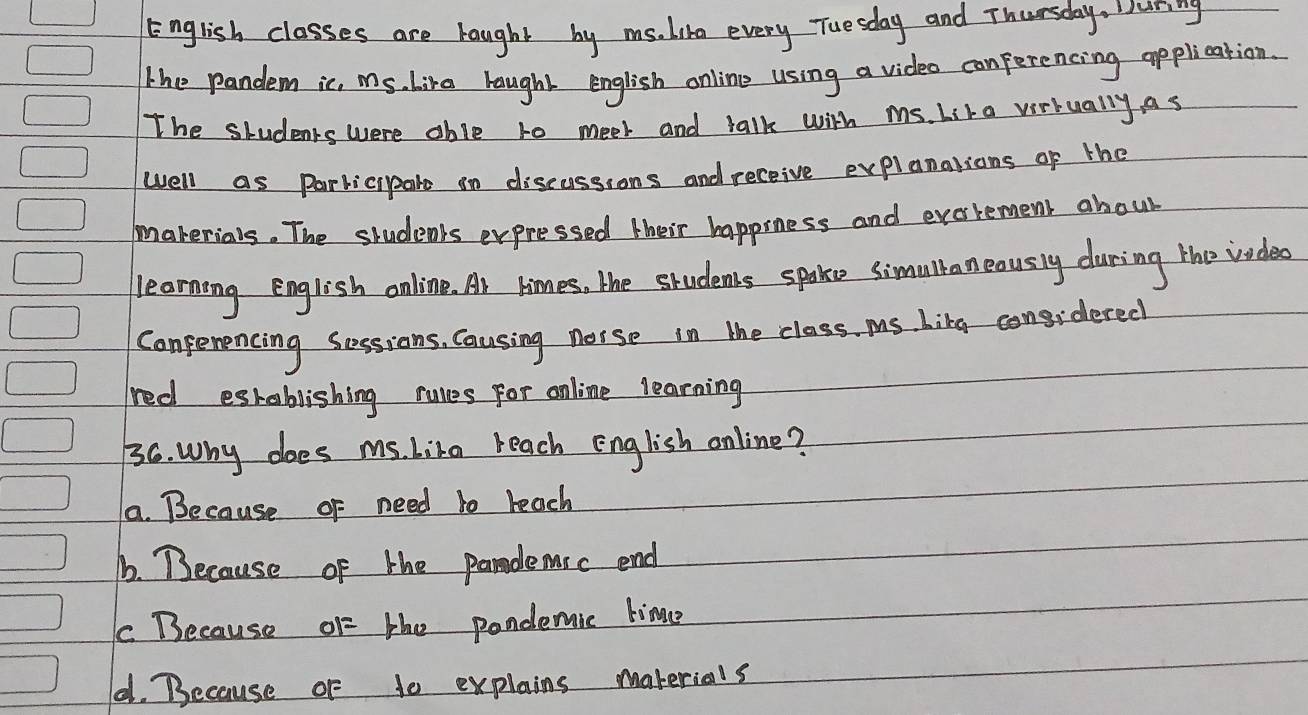 English classes are taught by ms. Lita every Tuesday and Thursday. During
the pandem ic, ms. Lita taught English online using a video conferencing application.
The students were able to meet and talk with ms. Lita virtually, as
well as participate in discussions and receive explanations of the
materials. The students expressed their happiness and excitement about
learning English online. At times, the students spoke simultaneously during the video
Conferencing sessions, causing noise in the class. ms. Lita considered
red establishing rules for online learning
36. Why does ms. Lita teach English online?
a. Because of need to teach
b. Because of the pandemic end
c Because of the pandemic time
d. Because of to explains materials